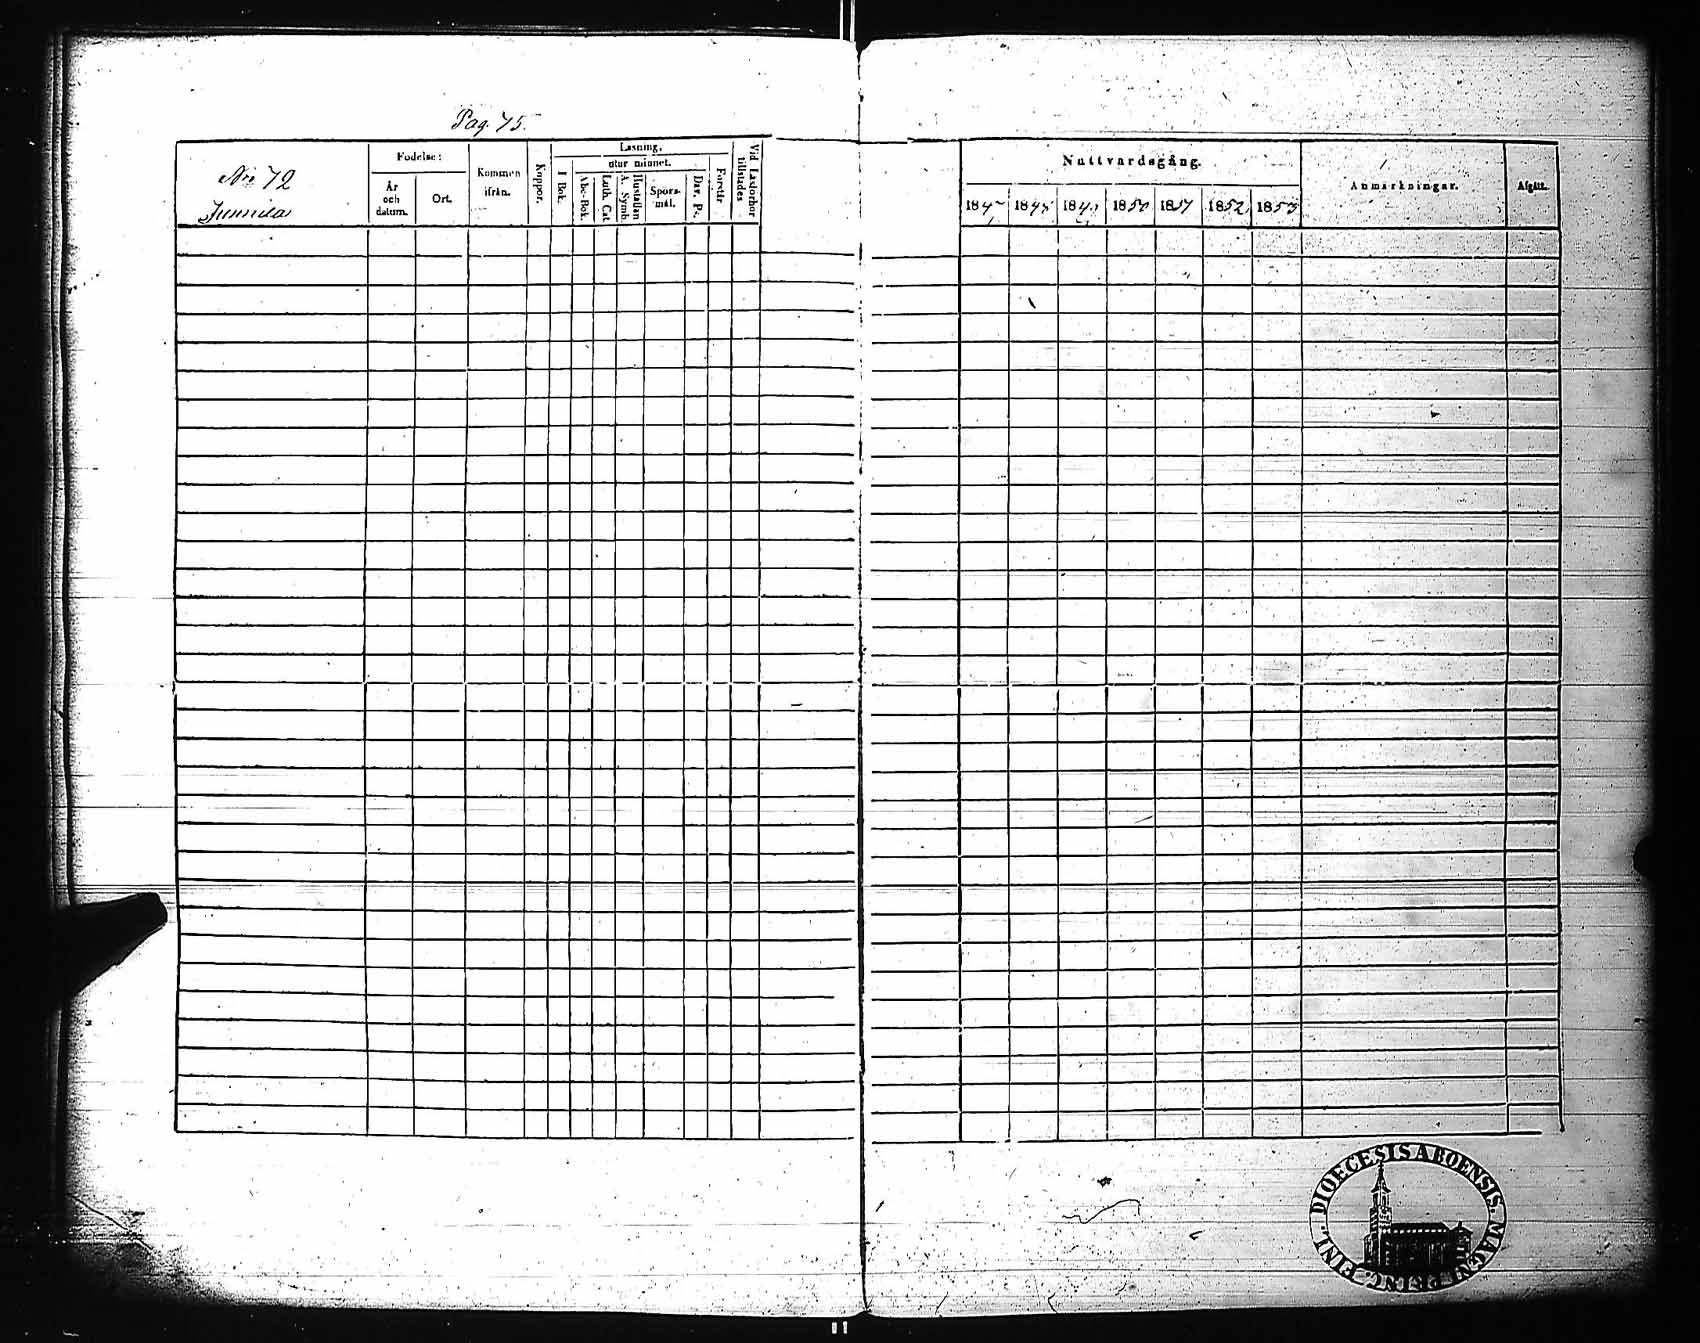 Pag. 75.
No 72
Junnila
Födelse:
År och datum.
Ort.
Kommen ifrån.
Koppor.
Läsning,
utur minnet.
I Bok.
Abc-Bok.
Luth. Cat.
Hustaflan A. Symb.
Spörsmål.
Dav. Ps.
Förstår
Vid Läsförhör tillstädes
Nattvardsgång.
1847 1848 1849 1850 1851 1852 1853
Anmärkningar.
Afgått.
DIOECESIS ABOENSIS. MAGNI PRINC. FINL.